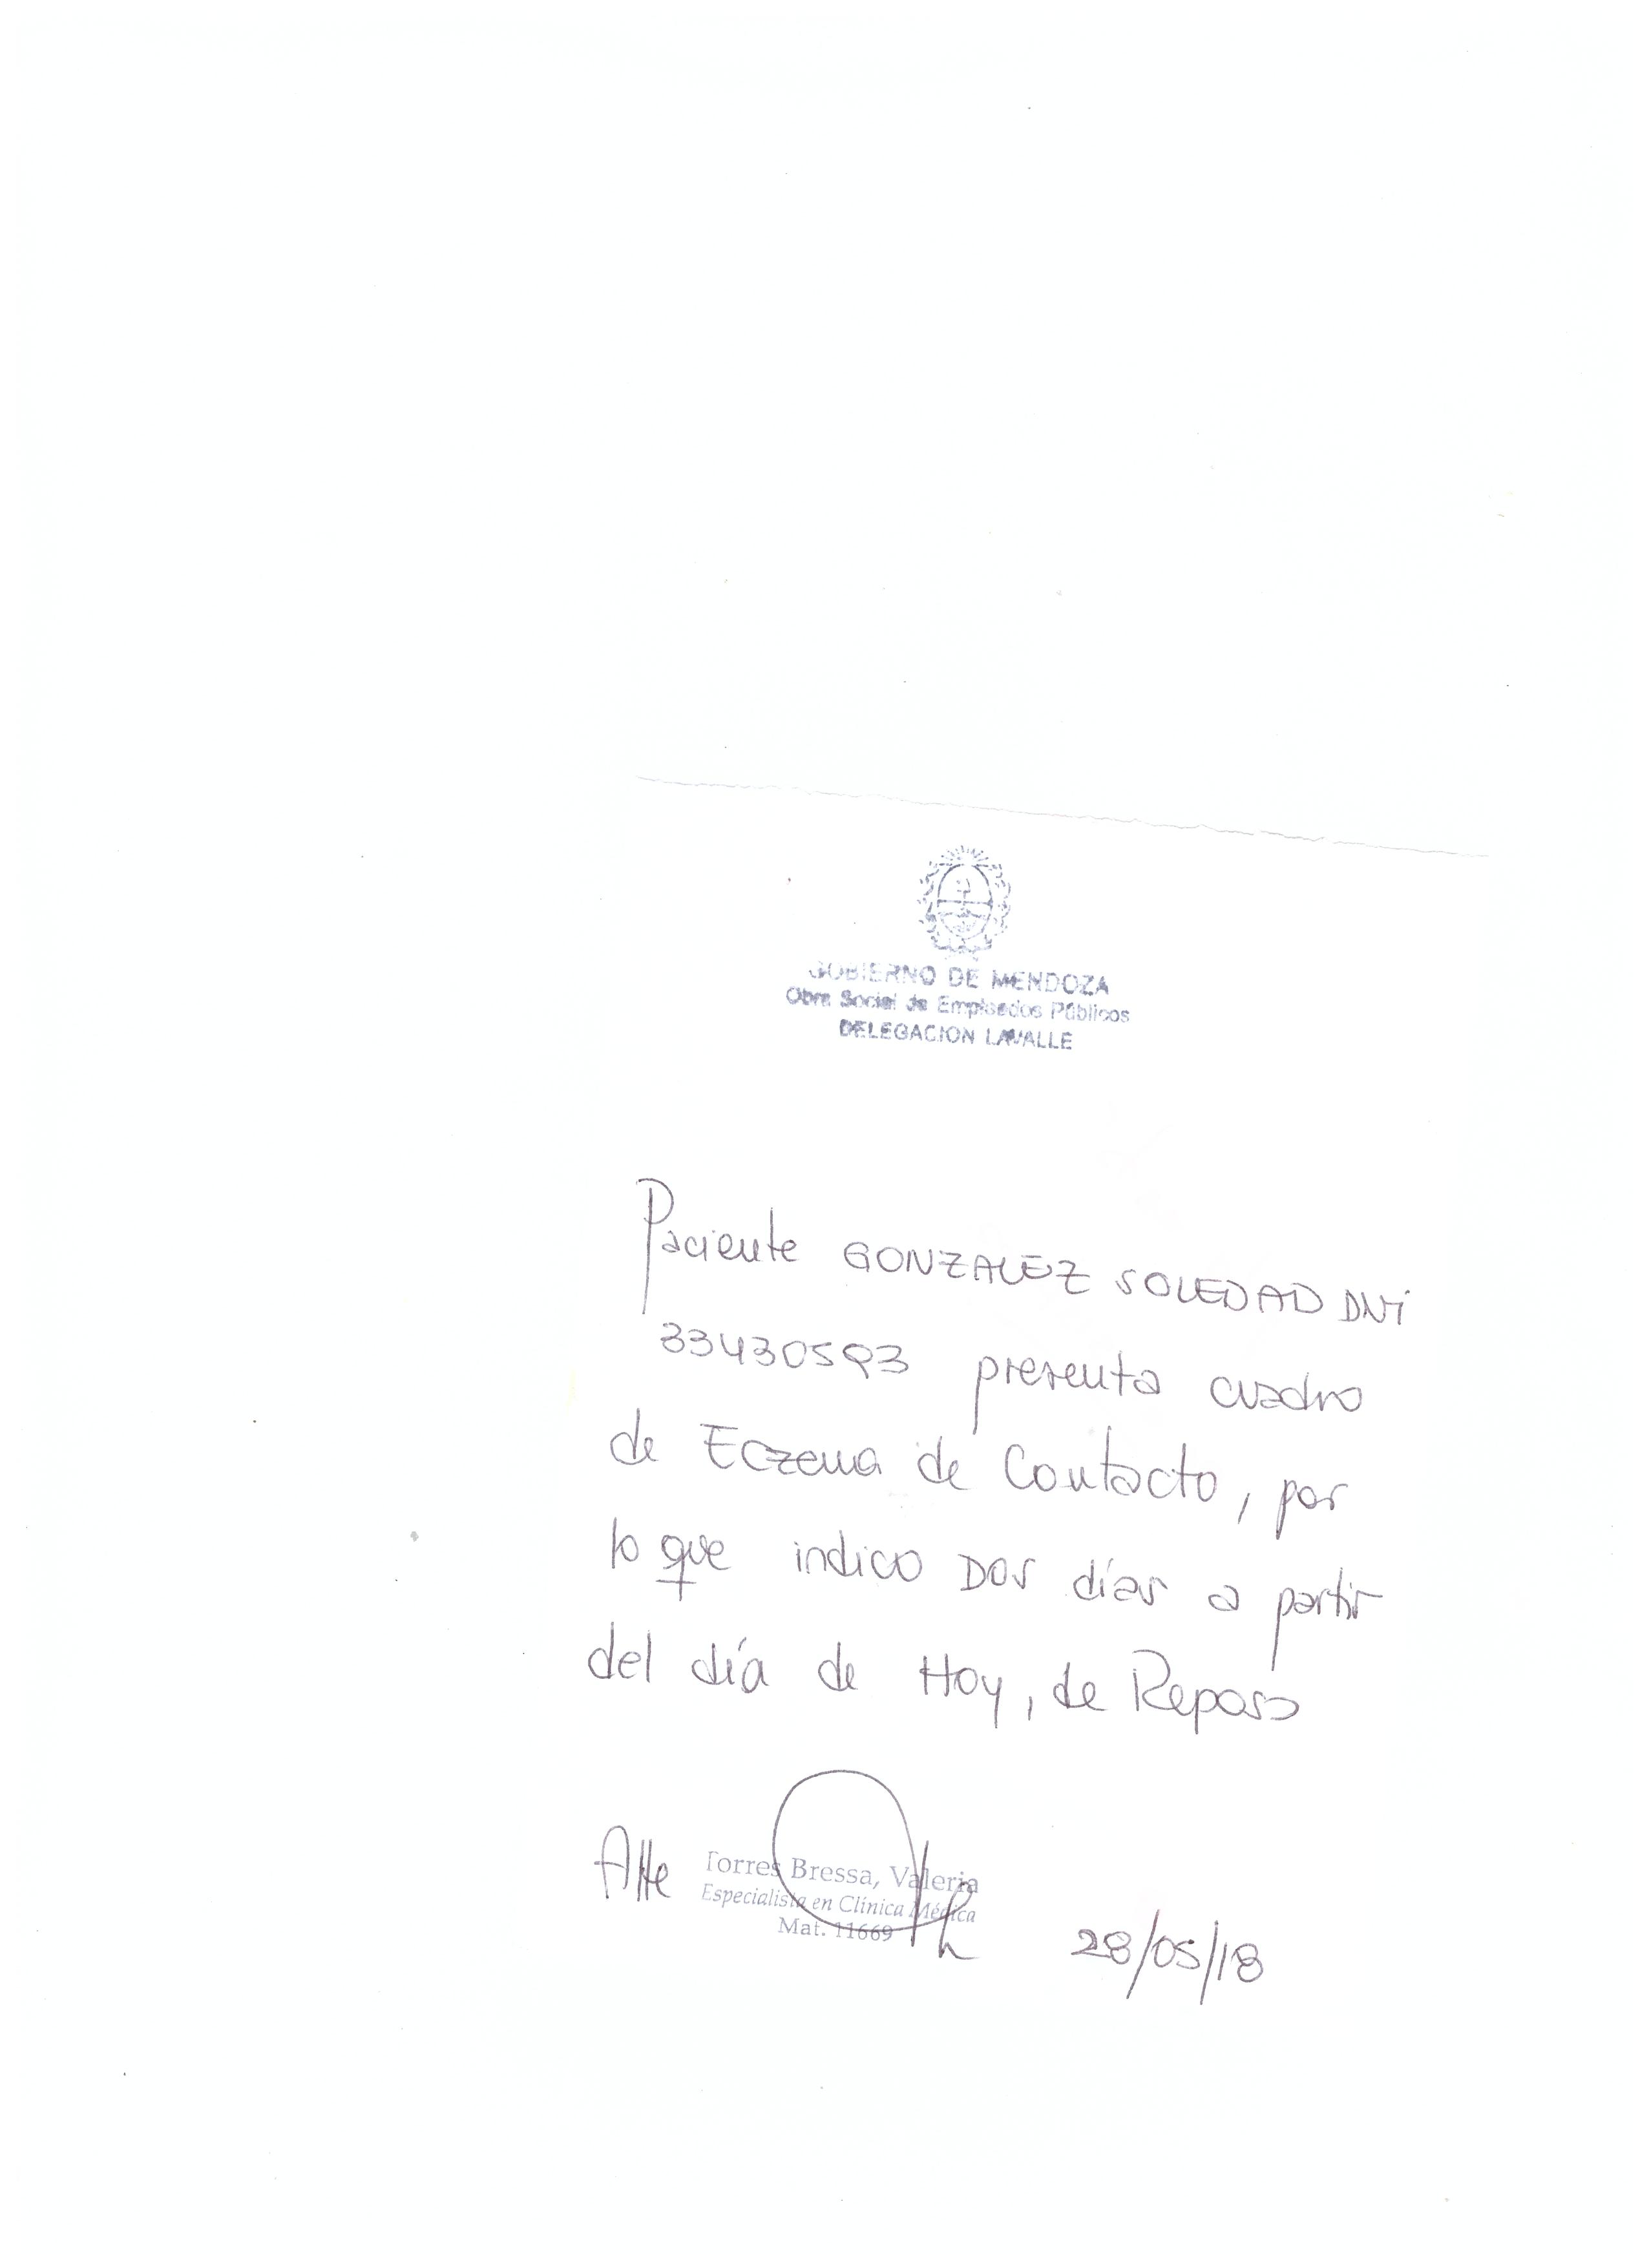 GOBIERNO DE MENDOZA
Obra Social de Empleados Públicos
DELEGACION LAVALLE
Paciente GONZALEZ SOLEDAD DNI
33430593 presenta cuadro
de Eczema de Contacto, por
lo que indico DOS días a partir
del día de Hoy, de Reposo
Atte
Torres Bressa, Valeria
Especialista en Clínica Médica
Mat. 11669
28/05/18